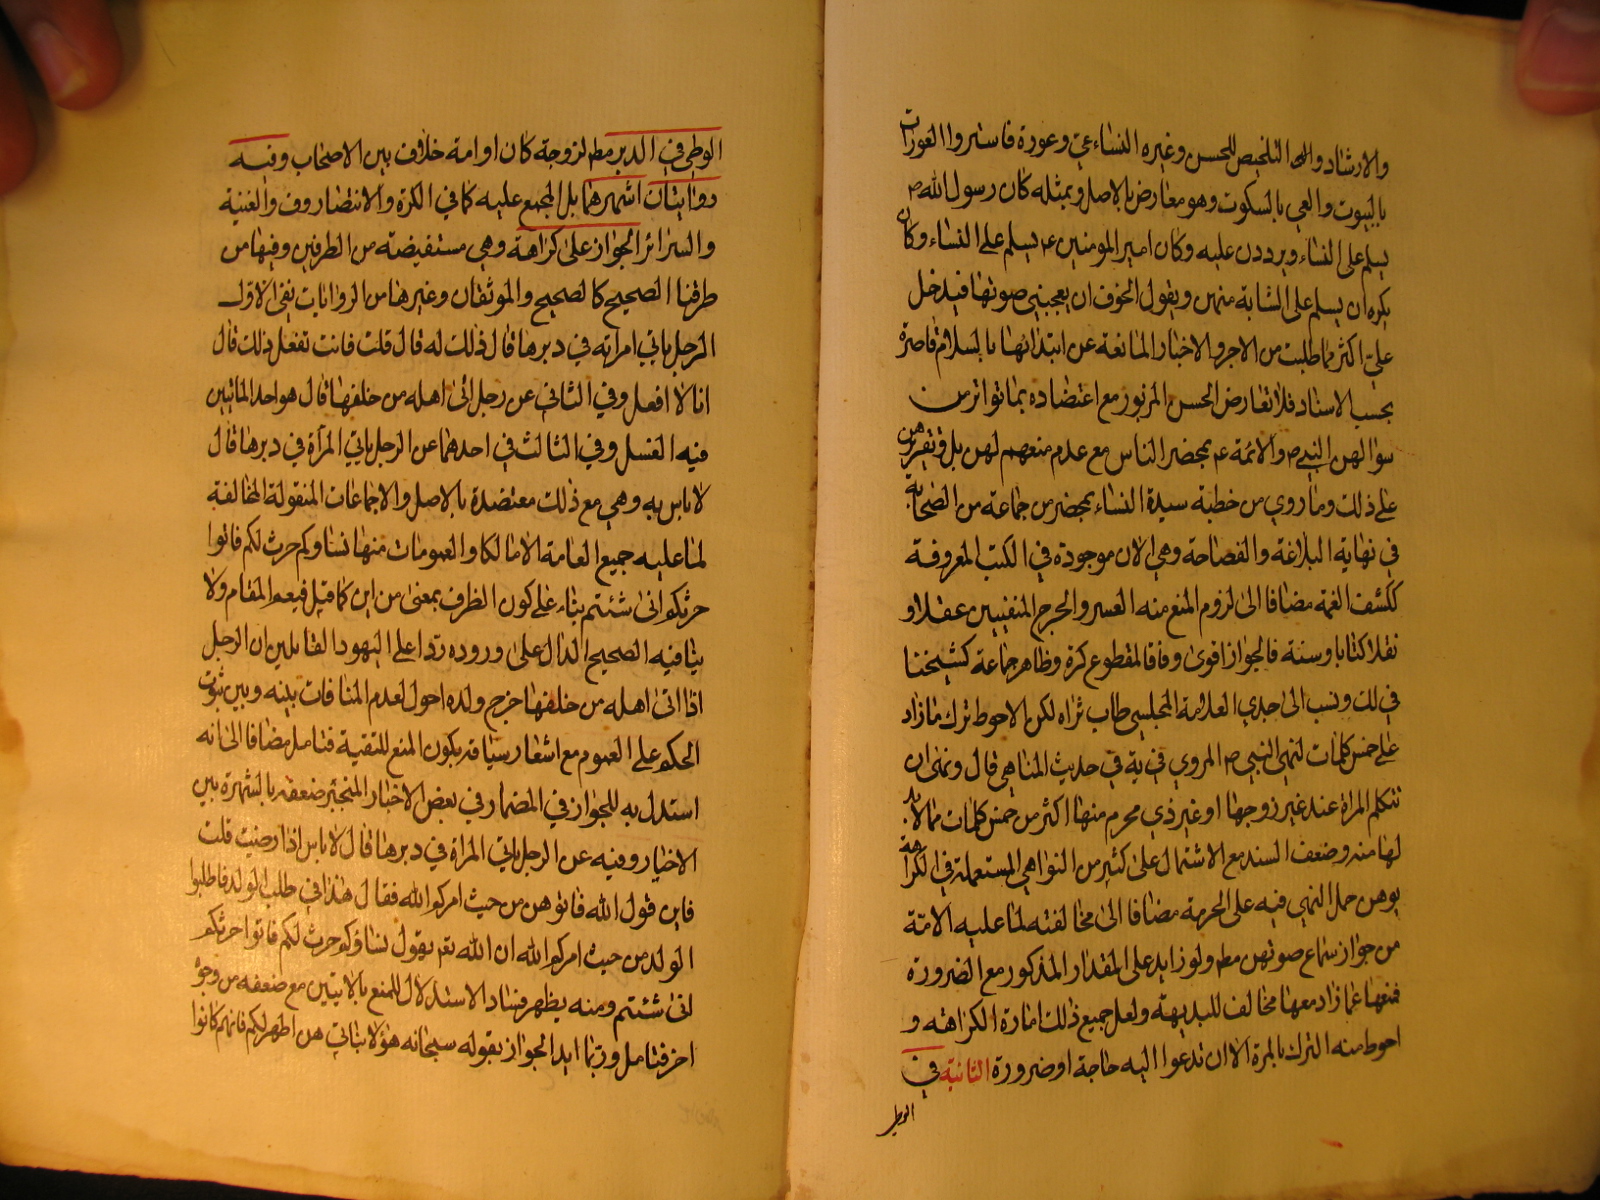 والارشاد والتلخيص للحسن وغيره النساء عي وعورة فاستروا العورات
بالبيوت والعي بالسكوت وهو معارض بالاصل وبمثله كان رسول الله ص
يسلم على النساء ويرددن عليه وكان امير المومنين ع يسلم على النساء وكان
يكره ان يسلم على الشابة منهن ويقول اتخوف ان يعجبني صوتها فيدخل
علي اكثر مما طلبت من الاجر والاخبار المانعة عن ابتدائها بالسلام قاصرة
بحسب الاسناد فلا تعارض الحسن المزبور مع اعتضاده بما تواتر من
سوالهن النبي ص والائمة ع بمحضر الناس مع عدم منعهم لهن بل وتقريرهن
على ذلك وما روي من خطبة سيدة النساء بمحضر من جماعة من الصحابة
في نهاية البلاغة والفصاحة وهي الان موجودة في الكتب المعروفة
ككشف الغمة مضافا الى لزوم المنع منه العسر والحرج المنفيين عقلا و
نقلا كتابا وسنة فالجواز اقوى وفاقا لمقطوع كرة وظاهر جماعة كشيخنا
في لك ونسب الى جدي العلامة المجلسي طاب ثراه لكن الاحوط ترك ما زاد
على خمس كلمات لنهي النبي ص المروي في يه في حديث المناهي قال ونهى ان
تتكلم المراة عند غير زوجها او غير ذي محرم منها اكثر من خمس كلمات مما لا بد
لها منه وضعف السند مع الاشتمال على كثير من النواهي المستعملة في الكراهة
يوهن حمل النهي فيه على الحرمة مضافا الى مخالفته لما عليه الامة
من جواز سماع صوتهن مط ولو زايد على المقدار المذكور مع الضرورة
فمنعها عما زاد معها مخالف للبديهة ولعل جميع ذلك امارة الكراهة و
احوط منه الترك بالمرة الا ان تدعوا اليه حاجة او ضرورة الثانية في
الوطي
الوطي في الدبر مط لزوجة كان او امة خلاف بين الاصحاب وفيه
روايتان اشهرهما بل المجمع عليه كما في الكرة والانتصار وف والغنية
والسرائر الجواز على كراهة وهي مستفيضة من الطرفين وفيها من
طرقنا الصحيح كالصحيح والموثقان وغيرها من الروايات ففي الاول
الرجل ياتي امراته في دبرها قال ذلك له قال قلت فانت تفعل ذلك قال
انا لا افعل وفي الثاني عن رجل اتى اهله من خلفها قال هو احد الماتيين
فيه الغسل وفي الثالث في احدهما عن الرجل ياتي المرأة في دبرها قال
لا باس به وهي مع ذلك معتضدة بالاصل والاجماعات المنقولة المخالفة
لما عليه جميع العامة الا مالكا والعمومات منها نساؤكم حرث لكم فاتوا
حرثكم انى شئتم بناء على كون الظرف بمعنى من اين كما قيل فيعم المقام ولا
ينافيه الصحيح الدال على وروده ردا على اليهود القائلين ان الرجل
اذا اتى اهله من خلفها خرج ولده احول لعدم المنافات بينه وبين ثبوت
الحكم على العموم مع اشعار سياقه بكون المنع للتقية فتامل مضافا الى انه
استدل به للجواز في المضمار في بعض الاخبار المنجبر ضعفه بالشهرة بين
الاخيار وفيه عن الرجل ياتي المراة في دبرها قال لا باس اذا رضيت قلت
فاين قول الله فاتوهن من حيث امركم الله فقال هذا في طلب الولد فاطلبوا
الولد من حيث امركم الله ان الله تع يقول نساؤكم حرث لكم فاتوا حرثكم
انى شئتم ومنه يظهر فساد الاستدلال للمنع بالايتين مع ضعفه من وجوه
اخر فتامل وربما ايد الجواز بقوله سبحانه هؤلاء بناتي هن اطهر لكم فانهم كانوا